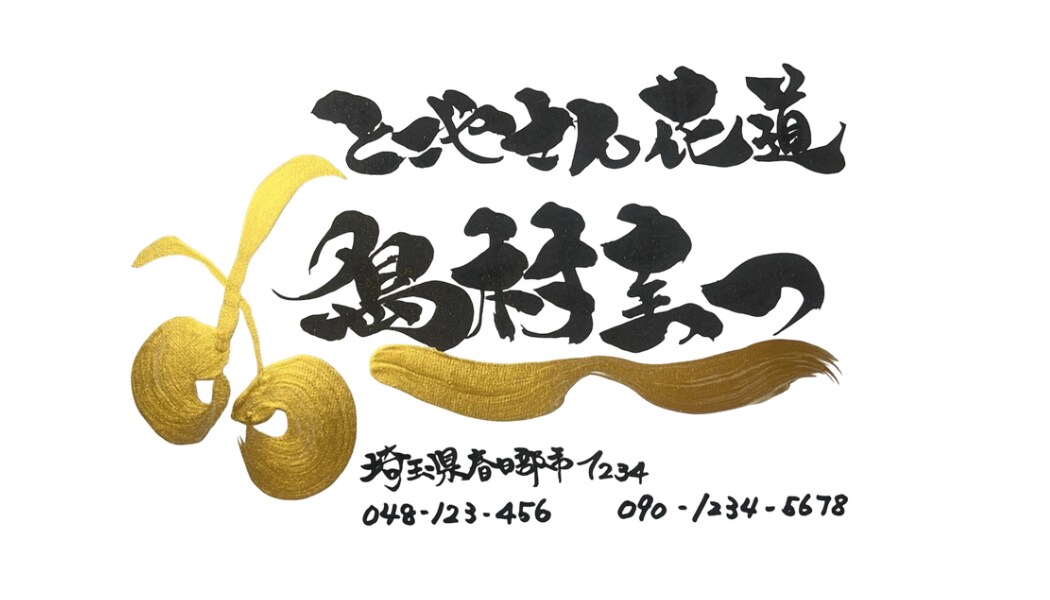 とこやさん花道
島村まっつ
埼玉県春日部市1234
048-123-456 090-1234-5678